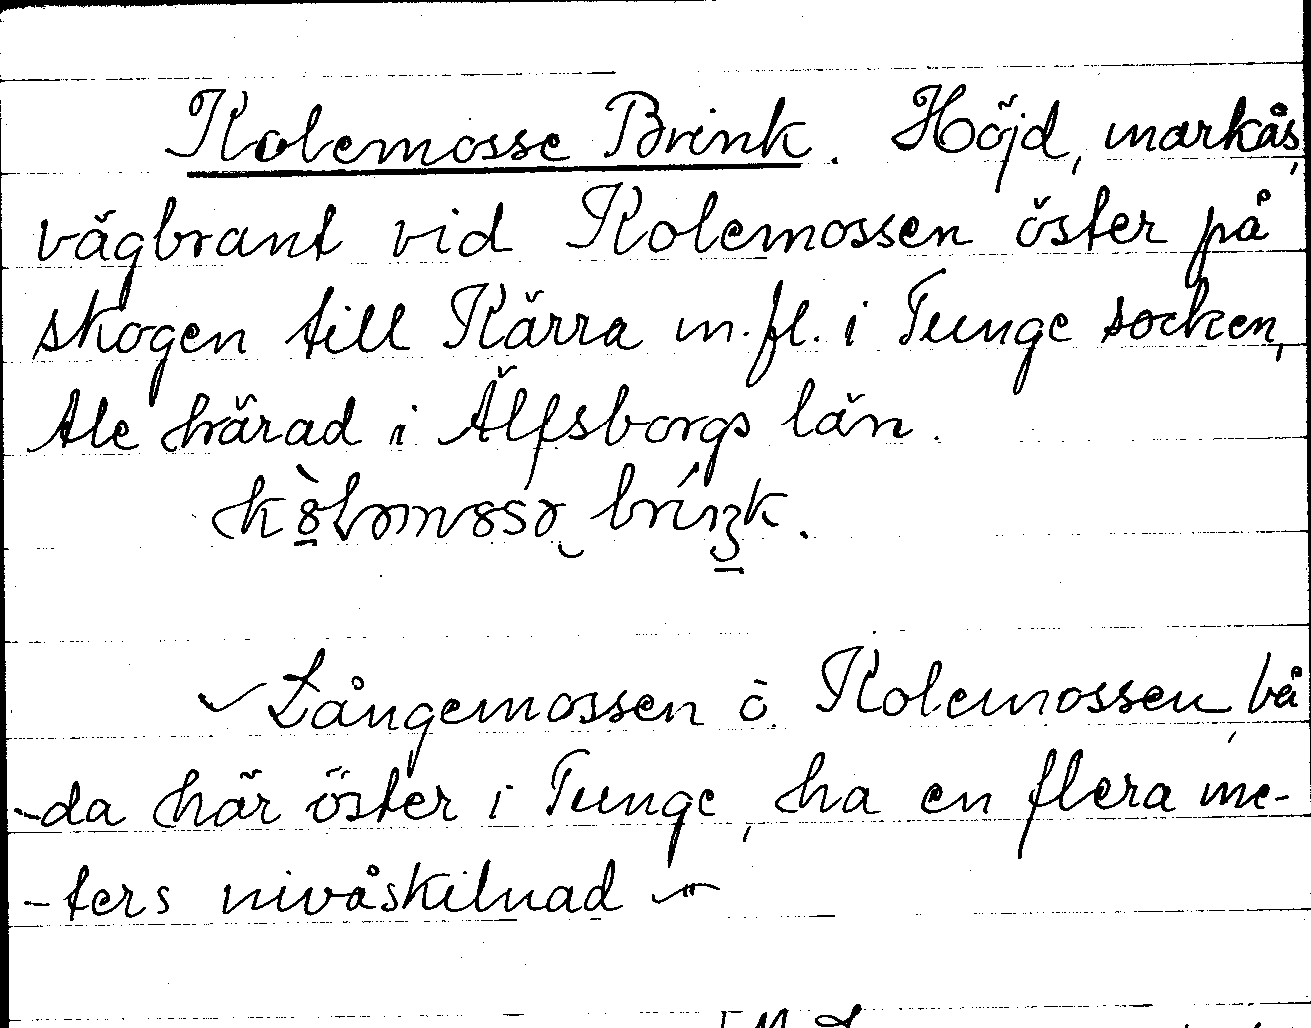 Kolemosse Brink. Höjd, markås,
vägbrant vid Kolemossen öster på
skogen till Kärra m.fl. i Tunge socken,
Ale härad i Älfsborgs län.
Långemossen ò Kolemossen, bå
-da här öster i Tunge, ha en flera me-
-ters nivåskilnad